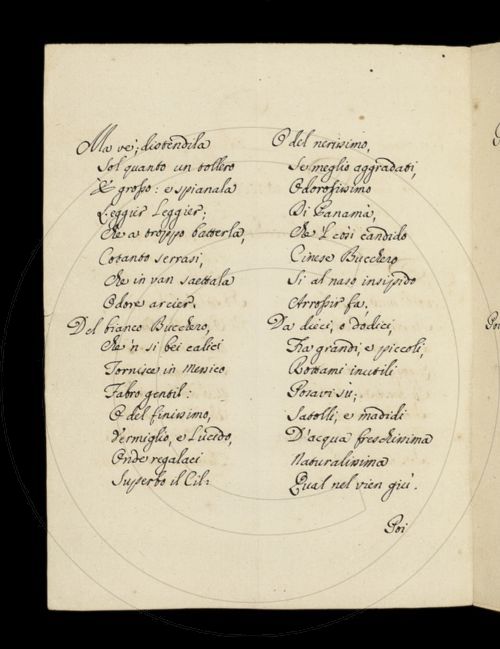 Ma ve', distendila
Sol quanto un tollero
E' grosso: e spianala
Leggier Leggier;
Che a troppo batterla,
Cotanto serrasi,
Che in van saettala
Odore arcier.
Del bianco Bucchero,
Che 'n si bei calici
Tornisce in Messico
Fabro gentil:
O del finissimo,
Vermiglio, e Lucido,
Onde regalaci
Superbo il Cil:
O del nerissimo,
Se meglio aggradati,
Odorosissimo
Di Panamà,
Che 'l così candido
Cinese Bucchero
Si al naso insipido
Arrossir fa.
Da dieci, o dodici,
Fra grandi, e piccoli,
Rottami inutili
Posavi sù;
Satolli, e madidi
D'acqua freschissima
Naturalissima
Qual nel vien giù.
Poi